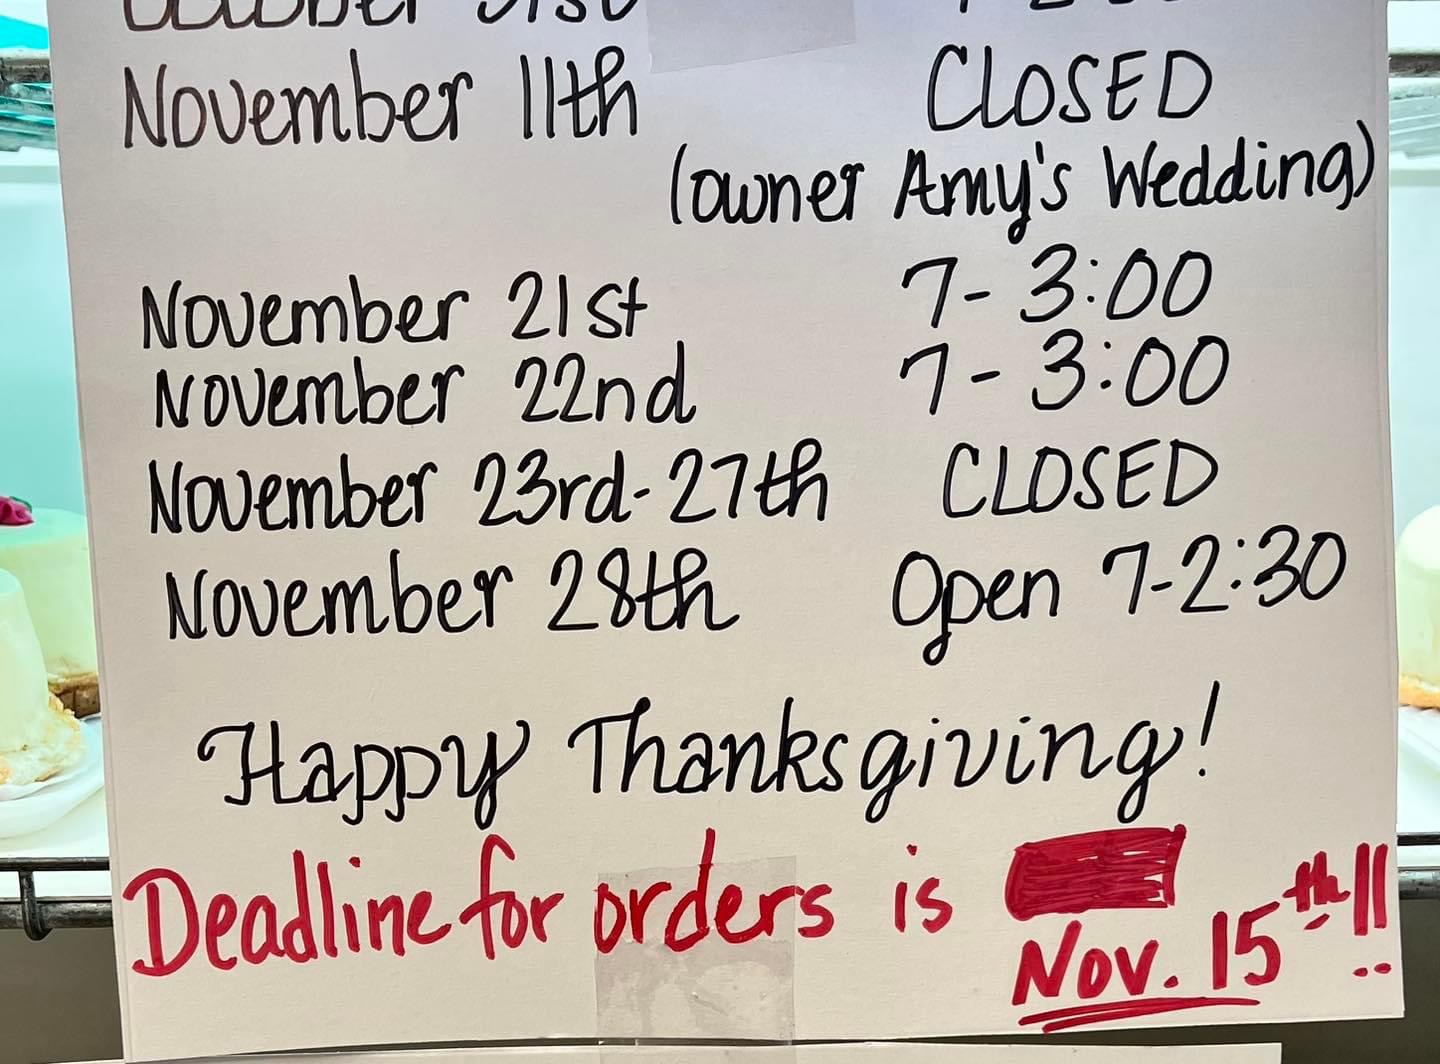 October 31st
November 11th CLOSED
(owner Amy's Wedding)
November 21st 7- 3:00
November 22nd 7- 3:00
November 23rd-27th CLOSED
November 28th Open 7-2:30
Happy Thanksgiving!
Deadline for orders is
Nov. 15th!!